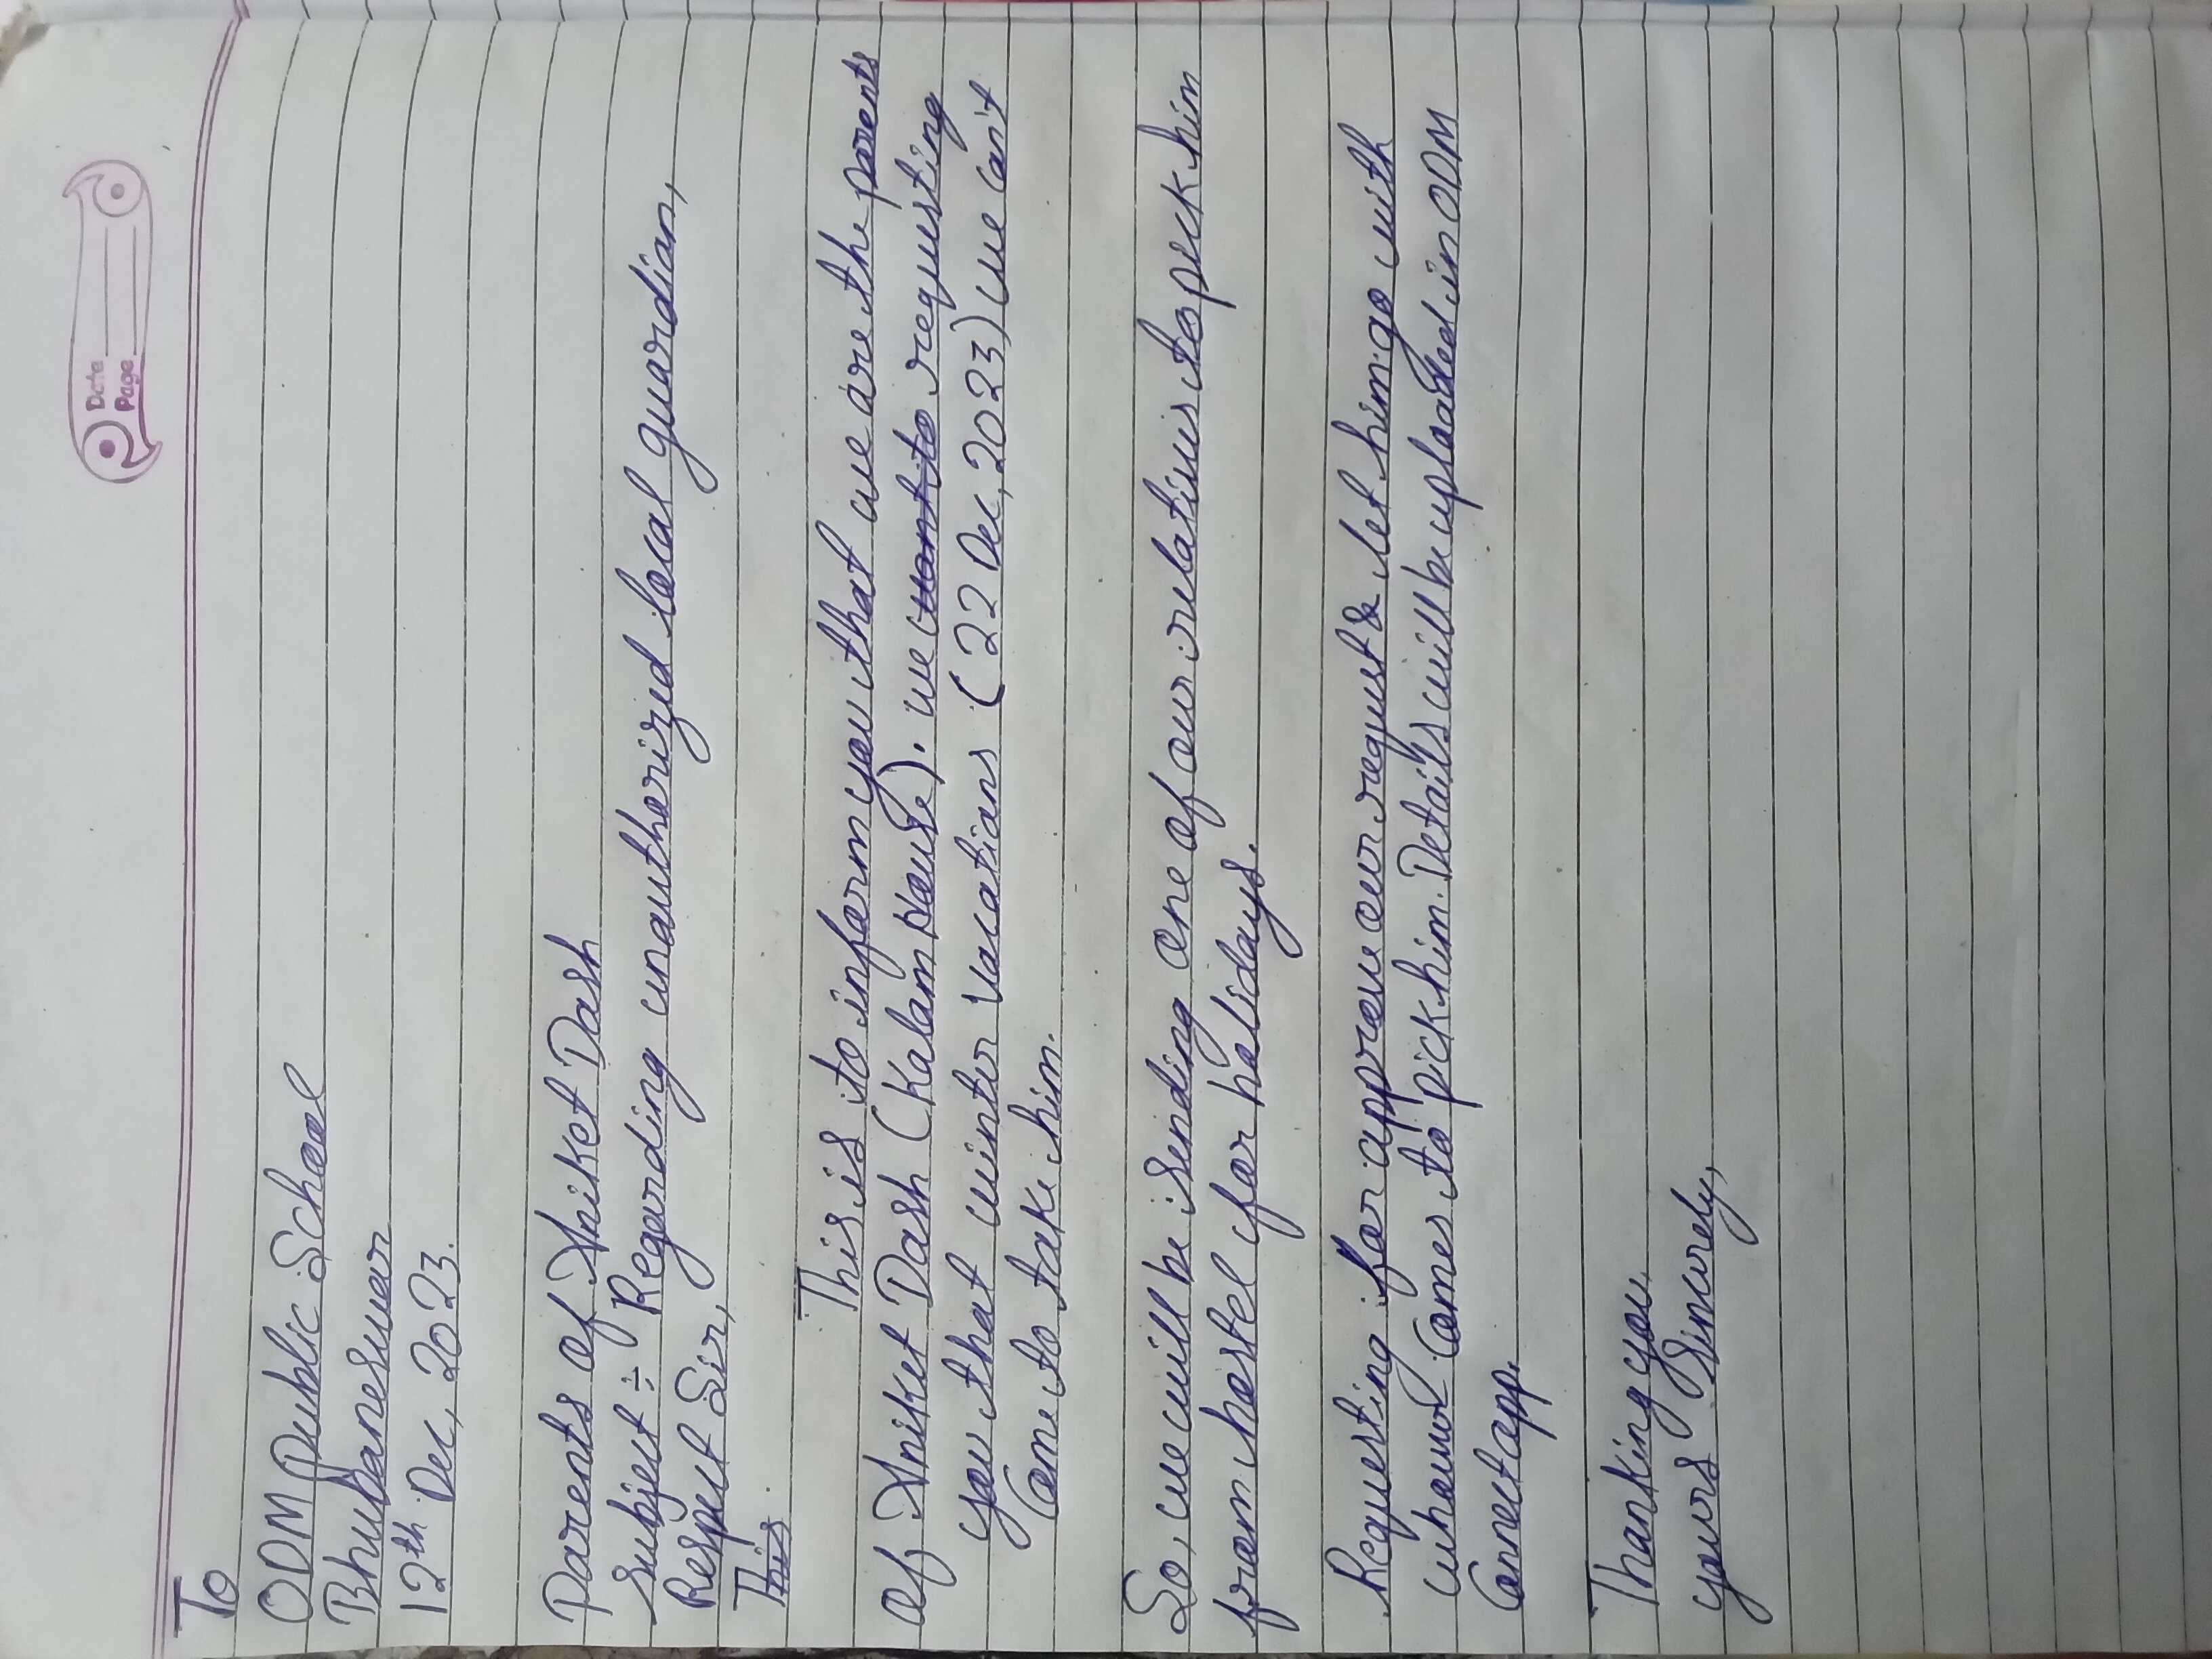 Date
Page
To
ODM public School
Bhubaneswar
12th Dec, 2023.
Parents of Aniket Dash
Subject ÷ Regarding unautherized local guardian,
Respect Sir,
This
This is to inform you that we are the parents
of Aniket Dash (Kalam House). we want to requesting
you that winter vacations (22 Dec, 2023) we can't
come to take him.
So, we will be sending one of our relatives to pick him
from hostel for holidays.
Requesting for approve our request & let him go with
whoever comes to pick him. Details will be uploaded in ODM
Connect app.
Thanking you,
yours Sincerely,